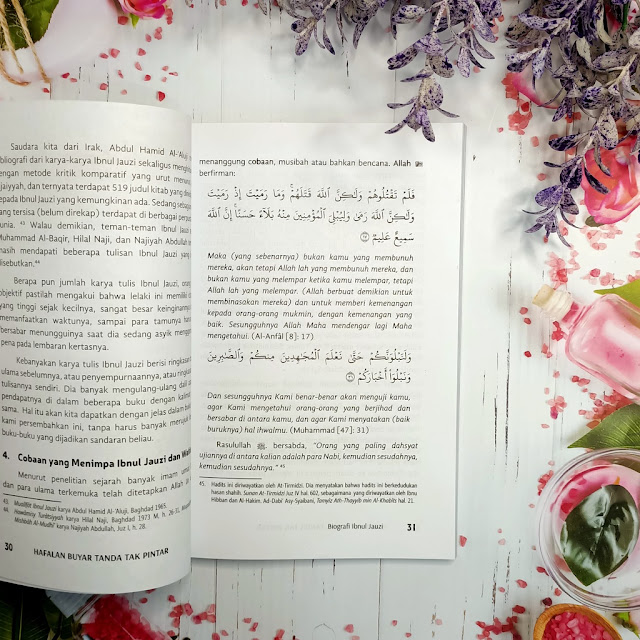 Saudara kita dari Irak, Abdul Hamid Al-'Aluji
bibliografi dari karya-karya Ibnul Jauzi sekaligus
dengan metode kritik komparatif yang urut menurut
Hijaiyyah, dan ternyata terdapat 519 judul kitab yang
kepada Ibnul Jauzi yang kemungkinan ada. Sedang sebagian
yang tersisa (belum direkap) terdapat di berbagai
dunia.⁴³ Walau demikian, teman-teman Ibnul Jauzi
Muhammad Al-Baqir, Hilal Naji, dan Najiyah Abdullah
masih mendapati beberapa tulisan Ibnul Jauzi yang
disebutkan.⁴⁴
Berapa pun jumlah karya tulis Ibnul Jauzi, orang
objektif pastilah mengakui bahwa lelaki ini memiliki
yang tinggi sejak kecilnya, sangat besar keinginannya
memanfaatkan waktunya, sampai para tamunya
bersabar menungguinya saat dia sedang asyik
pena pada lembaran kertasnya.
Kebanyakan karya tulis Ibnul Jauzi berisi ringkasan
ulama sebelumnya, atau penyempurnaannya, atau
tulisannya sendiri. Dia banyak mengulang-ulang
pendapatnya di dalam beberapa buku dengan
sama. Hal itu akan kita dapatkan dengan jelas dalam
kami persembahkan ini, tanpa harus banyak
buku-buku yang dijadikan sandaran beliau.
4. Cobaan yang Menimpa Ibnul Jauzi dan
Menurut penelitian sejarah banyak imam
dan para ulama terkemuka telah ditetapkan Allah
43. Muallifât Ibnul Jauzi karya Abdul Hamid Al-'Aluji, Baghdad 1965.
44. karya Hilal Naji, Baghdad 1973 M, h. 26-31,
karya Najiyah Abdullah, Juz I, h. 28.
30 HAFALAN BUYAR TANDA TAK PINTAR
menanggung cobaan, musibah atau bahkan bencana. Allah ﷻ
berfirman:
فَلَمْ تَقْتُلُوهُمْ وَلَٰكِنَّ اللَّهَ قَتَلَهُمْ ۚ وَمَا رَمَيْتَ إِذْ رَمَيْتَ
وَلَٰكِنَّ اللَّهَ رَمَىٰ وَلِيُبْلِيَ الْمُؤْمِنِينَ مِنْهُ بَلَاءً حَسَنًا ۚ إِنَّ اللَّهَ
سَمِيعٌ عَلِيمٌ ۝١٧
Maka (yang sebenarnya) bukan kamu yang membunuh
mereka, akan tetapi Allah lah yang membunuh mereka, dan
bukan kamu yang melempar ketika kamu melempar, tetapi
Allah lah yang melempar. (Allah berbuat demikian untuk
membinasakan mereka) dan untuk memberi kemenangan
kepada orang-orang mukmin, dengan kemenangan yang
baik. Sesungguhnya Allah Maha mendengar lagi Maha
mengetahui. (Al-Anfâl [8]: 17)
وَلَنَبْلُوَنَّكُمْ حَتَّىٰ نَعْلَمَ الْمُجَاهِدِينَ مِنكُمْ وَالصَّابِرِينَ
وَنَبْلُوَ أَخْبَارَكُمْ ۝٣١
Dan sesungguhnya Kami benar-benar akan menguji kamu,
agar Kami mengetahui orang-orang yang berjihad dan
bersabar di antara kamu, dan agar Kami menyatakan (baik
buruknya) hal ihwalmu. (Muhammad [47]: 31)
Rasulullah ﷺ. bersabda, "Orang yang paling dahsyat
ujiannya di antara kalian adalah para Nabi, kemudian sesudahnya,
kemudian sesudahnya." ⁴⁵
45. Hadits ini diriwayatkan oleh At-Tirmidzi. Dia menyatakan bahwa hadits ini berkedudukan
hasan shahih. Sunan Al-Tirmidzi Juz IV hal. 602, sebagaimana yang diriwayatkan oleh Ibnu
Hibban dan Al-Hakim. Asy-Syaibani, hal. 21.
Biografi Ibnul Jauzi 31